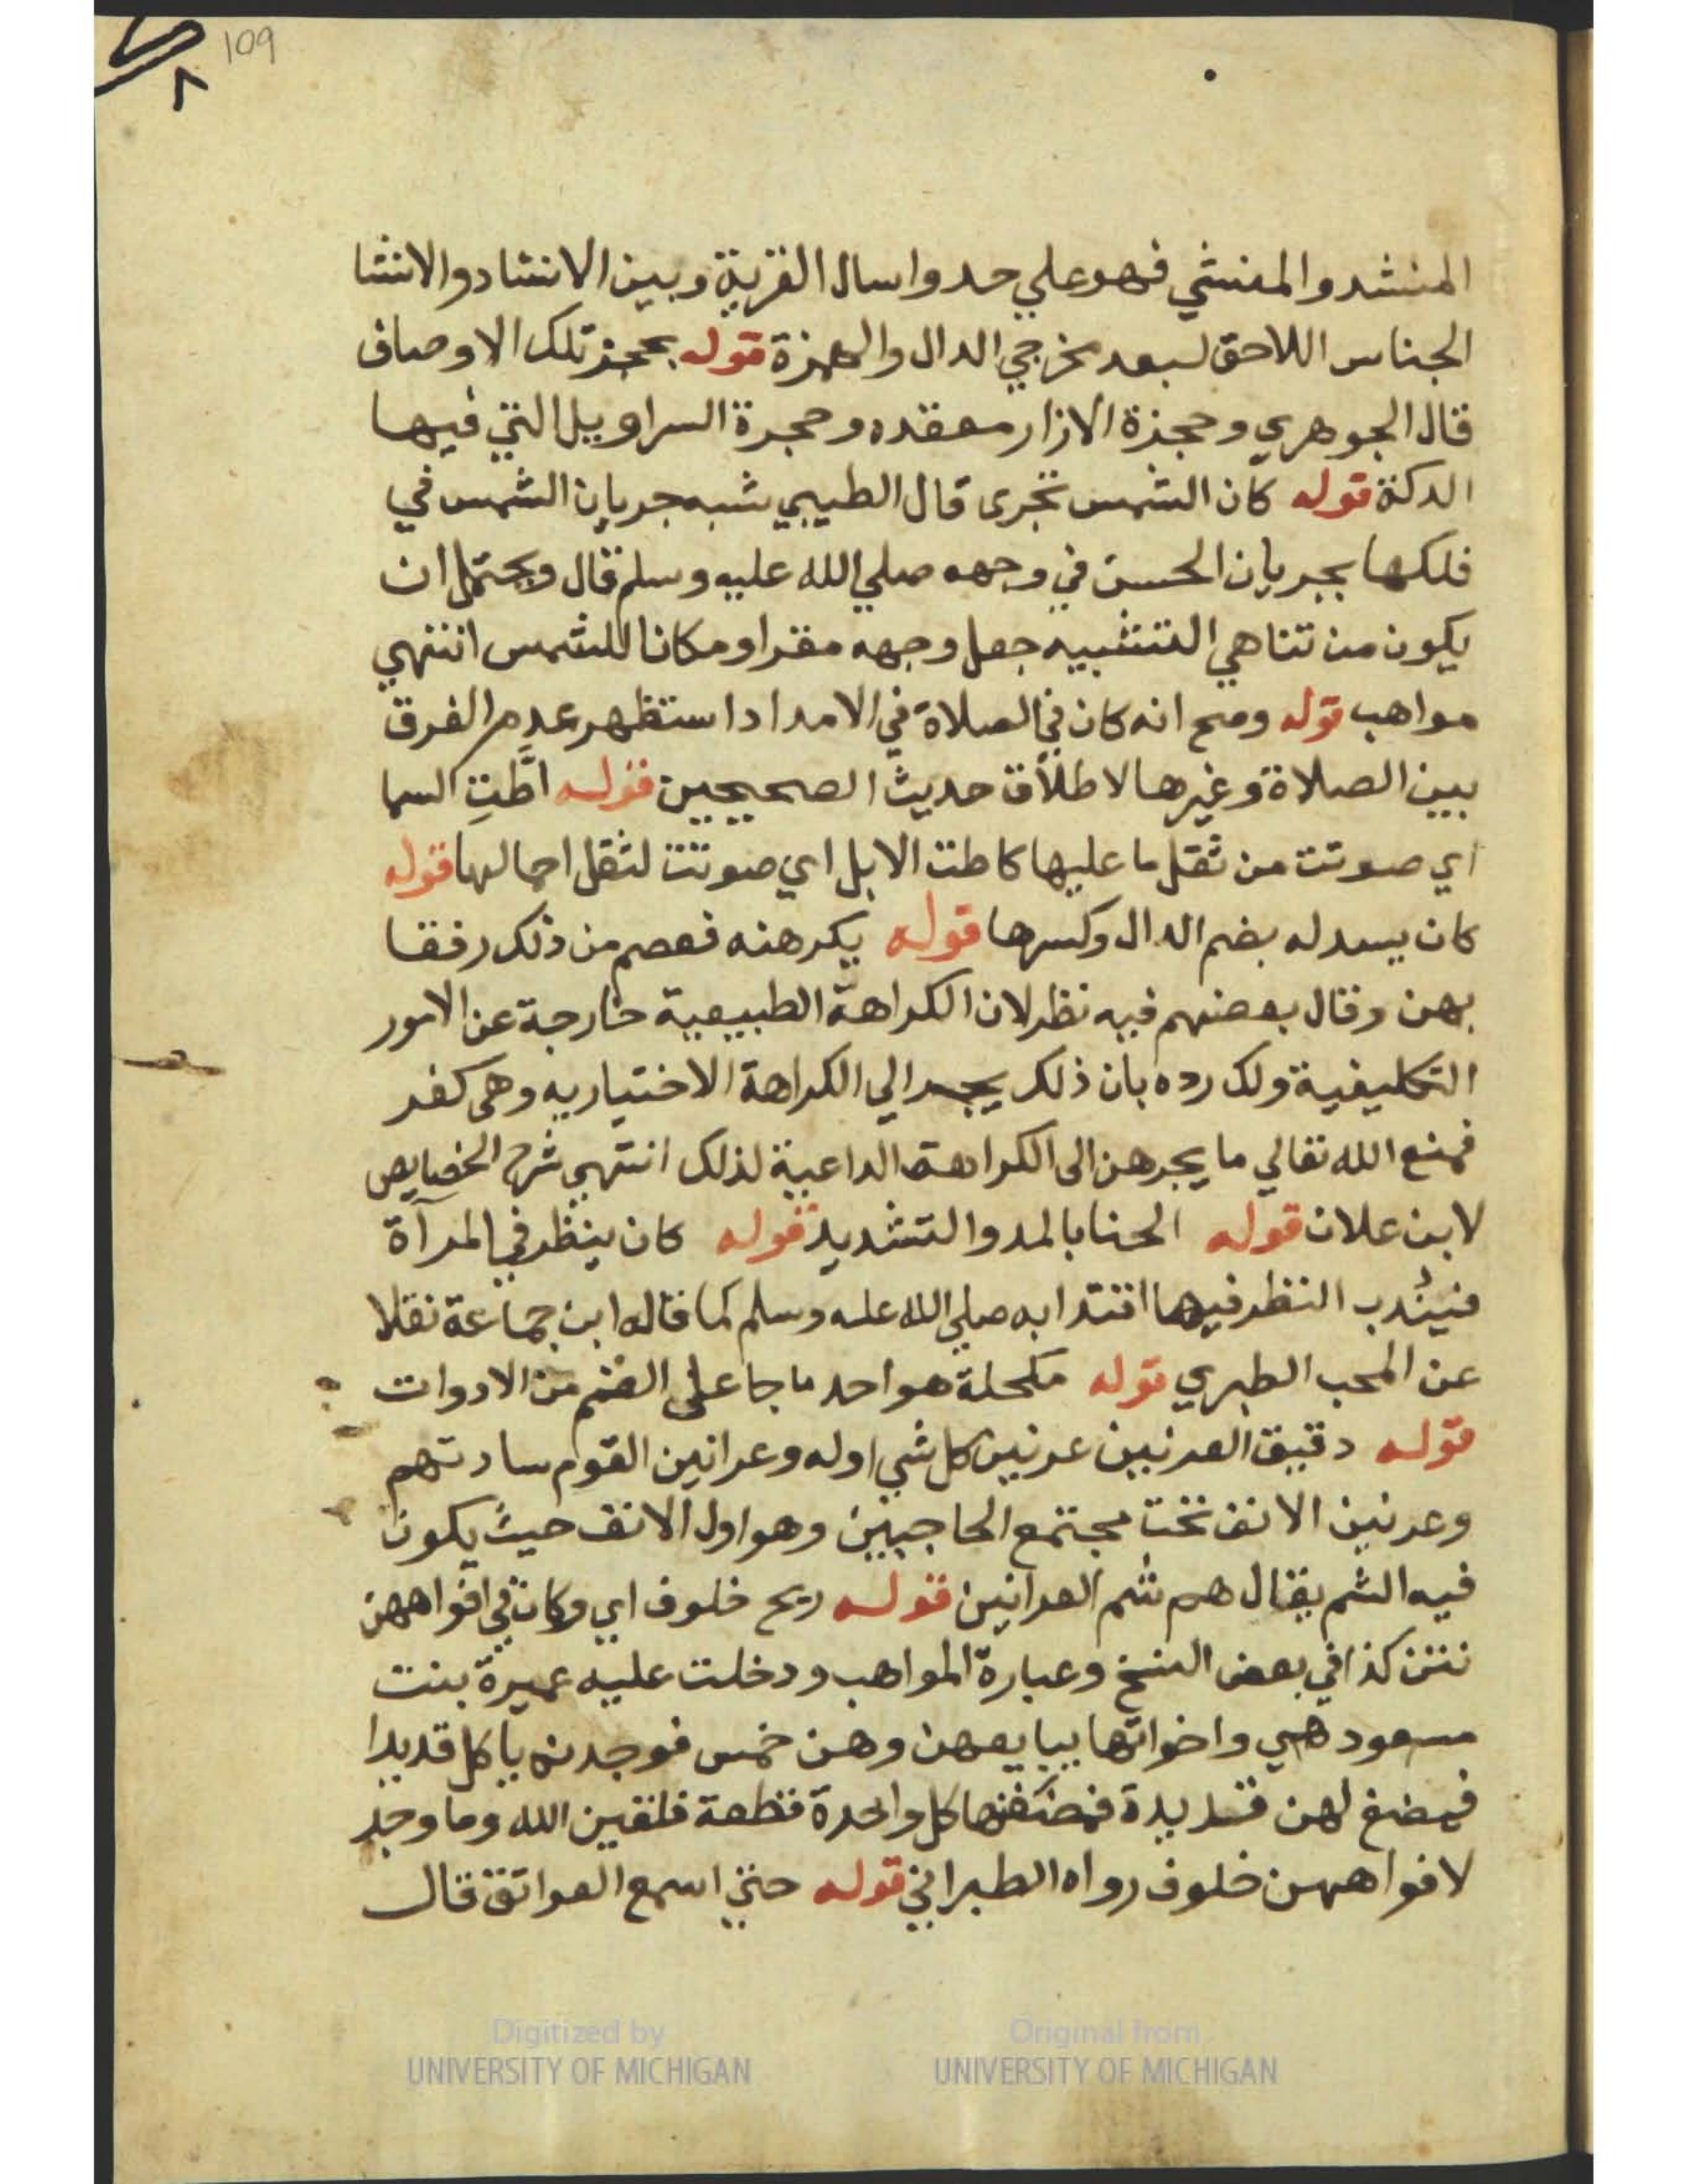 109
٨
المنشد والمنشي فهو علي حد واسال القرية وبين الانشاد والانشا
الجناس اللاحق لبعد مخرجي الدال والهمزة قوله بحجز تلك الاوصاف
قال الجوهري وحجزة الازار معقده وحجرة السراويل التي فيها
الدكة قوله كان الشمس تجرى قال الطيبي شبه جريان الشمس في
فلكها بجريان الحسن في وجهه صلي الله عليه وسلم قال ويحتمل ان
يكون من تناهي التشبيه جعل وجهه مقرا ومكانا للشمس انتهي
مواهب قوله وصح انه كان في الصلاة في الامداد استظهر عدم الفرق
بين الصلاة وغيرها لاطلاق حديث الصحيحين قوله اطَّتِ السما
اي صوتت من ثقل ما عليها كاطت الابل اي صوتت لثقل احمالها قوله
كان يسدله بضم الدال وكسرها قوله يكرهنه فعصم من ذلك رفقا
بهن وقال بعضهم فيه نظر لان الكراهة الطبيعية خارجة عن الامور
التكليفية ولك رده بان ذلك يجر الي الكراهة الاختياريه وهى كفر
فمنع الله تعالي ما يجرهن الى الكراهة الداعية لذلك انتهي شرح الخصايص
لابن علان قوله الحنا بالمد والتشديد قوله كان ينظر في المرآة
فيندب النظر فيها اقتدا به صلي الله عليه وسلم كما قاله ابن جماعة نقلا
عن المحب الطبري قوله مكحلة هو احد ما جا على الضم من الادوات
قوله دقيق العرنين عرنين كل شي اوله وعرانين القوم سادتهم
وعرنين الانف تحت مجتمع الحاجبين وهو اول الانف حيث يكون
فيه الشم يقال هم شم العرانين قوله ريح خلوف اي وكان في افواههن
نتن كذا في بعض النسخ وعبارة المواهب ودخلت عليه عميرة بنت
مسعود هي واخواتها يبايعهن وهن خمس فوجدنه ياكل قديدا
فمضغ لهن قديدة فمضغنها كل واحدة قطعة فلقين الله وما وجد
لافواههن خلوف رواه الطبراني قوله حتي اسمع العواتق قال
Digitized by
UNIVERSITY OF MICHIGAN
Original from
UNIVERSITY OF MICHIGAN